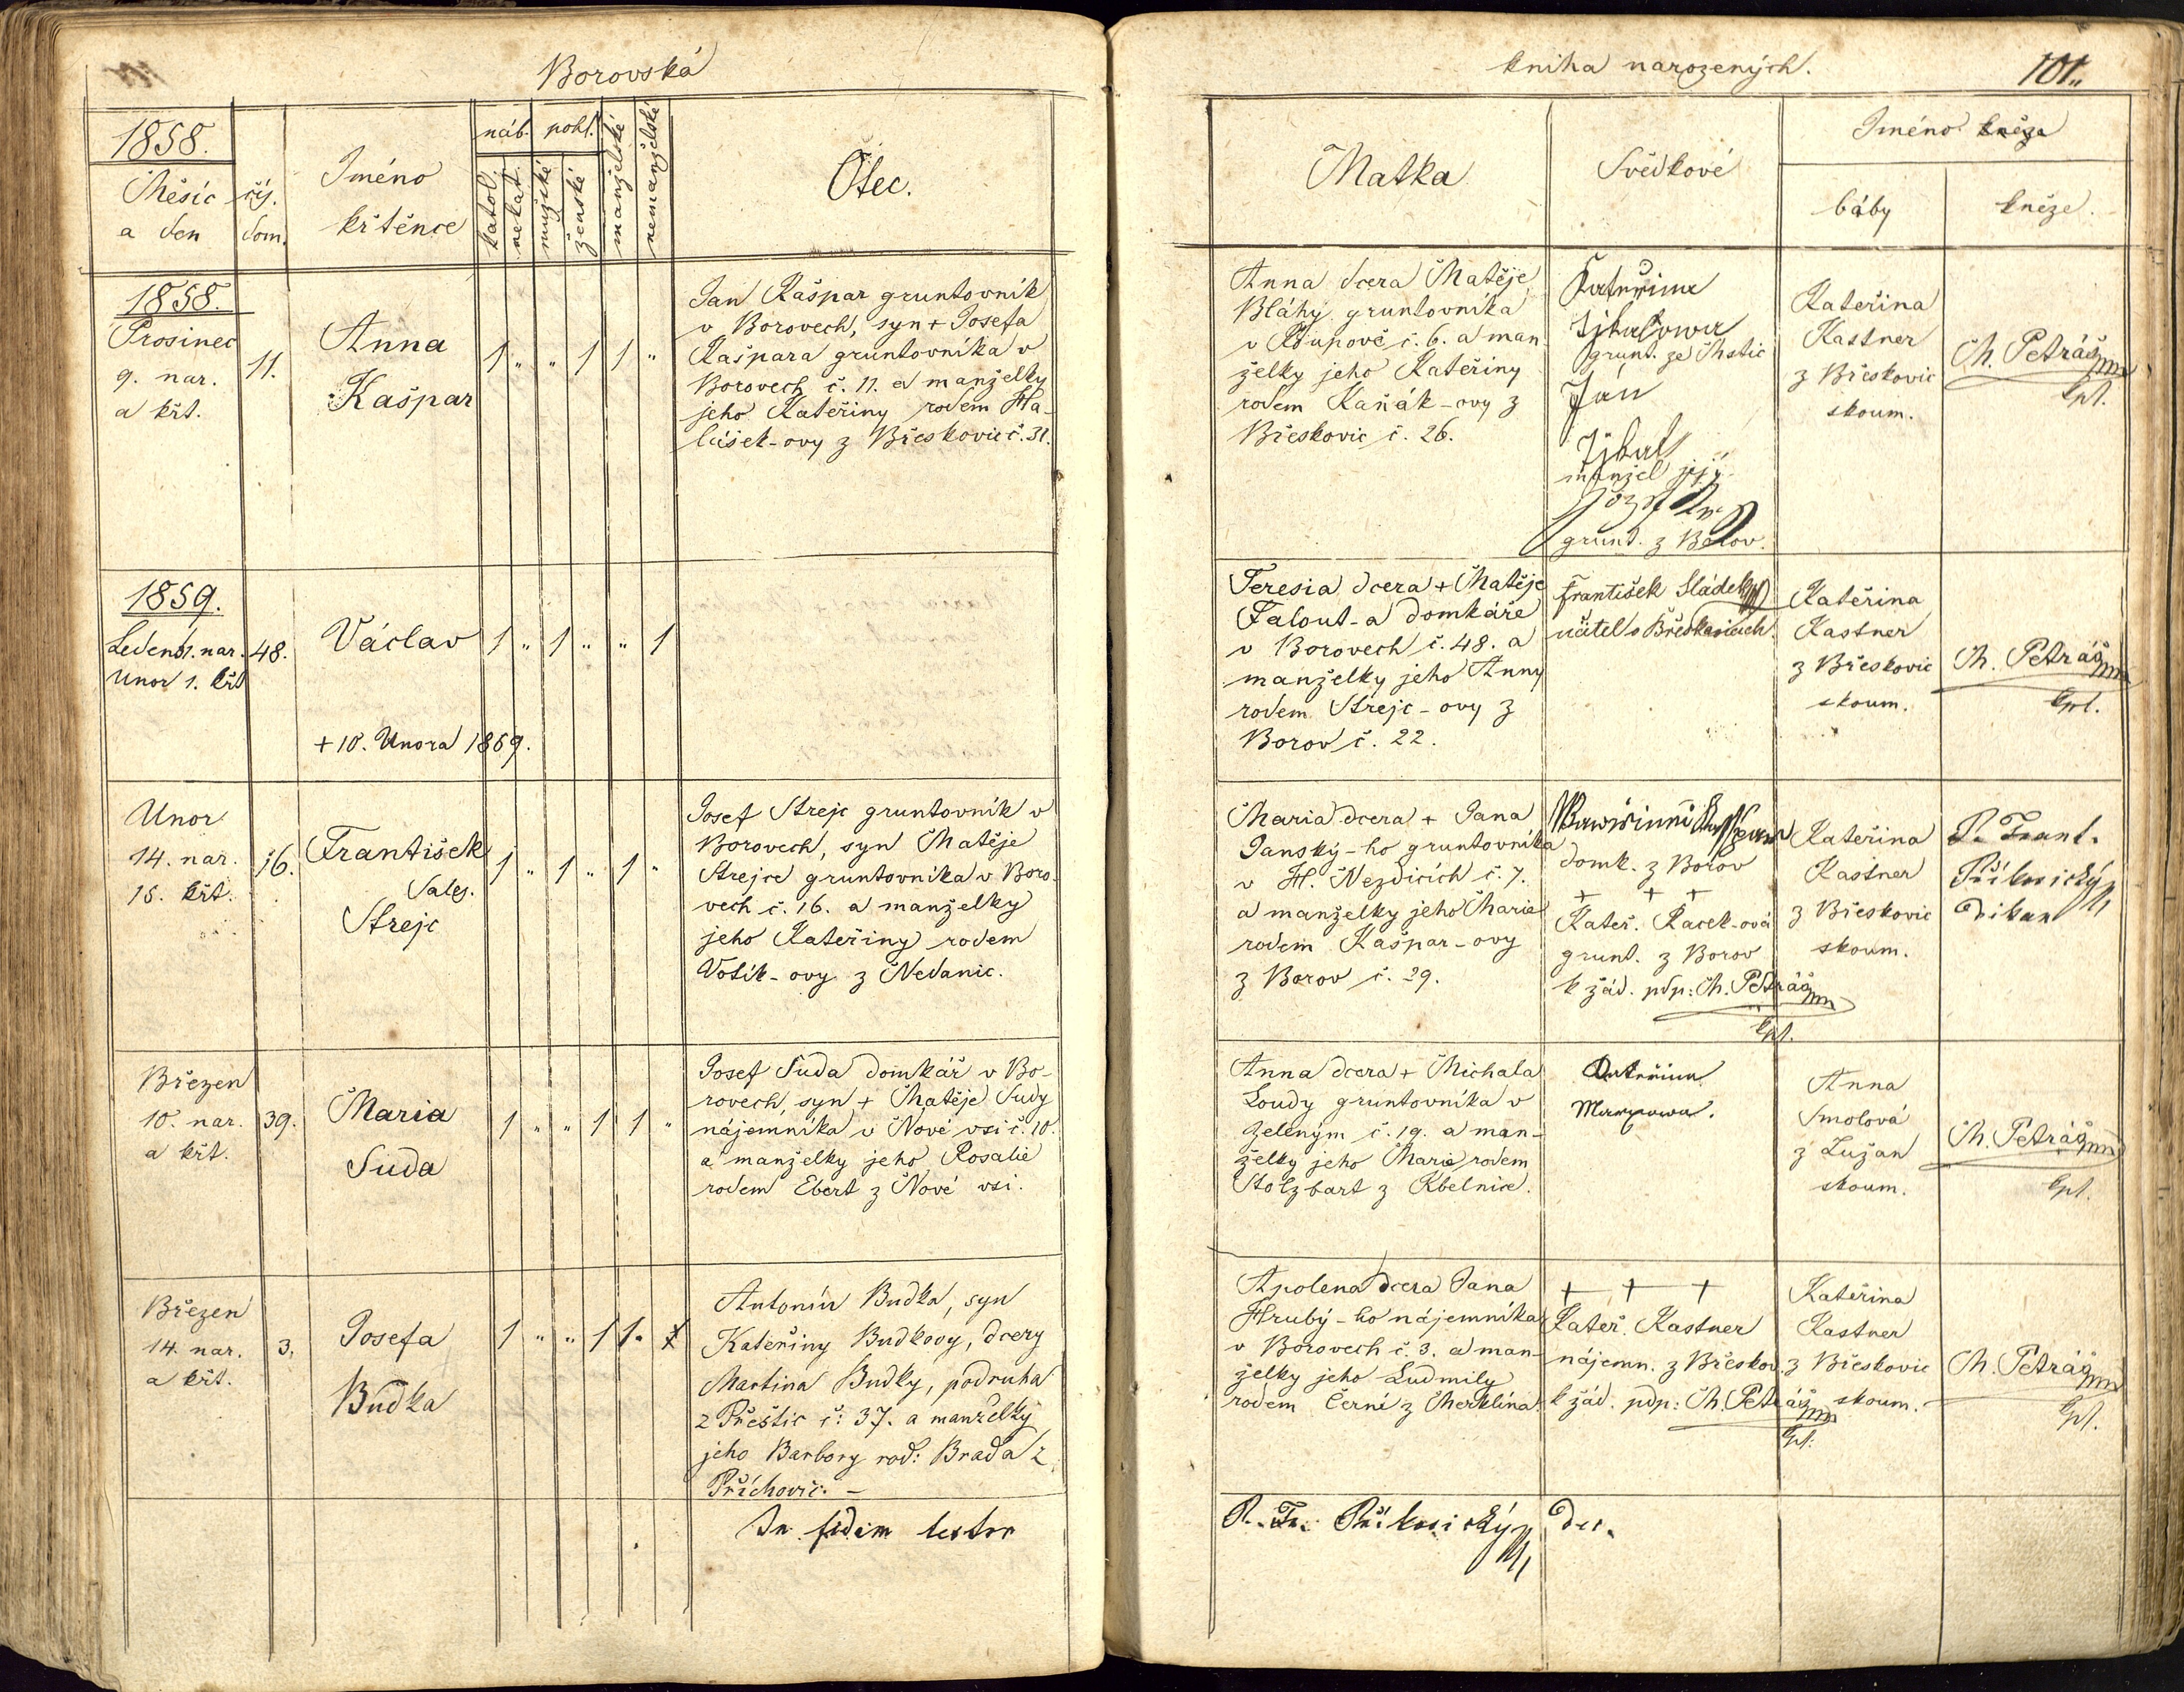 Borovská
kniha narozených.
101.
1858.
Měsíc
a den
čís.
dom.
Jméno
křtěnce
náb.
pohl.
katol.
nekat.
mužské
ženské
manželské
nemanželské
Otec.
Matka
Svědkové
Jméno kněza
báby
kněze.
1858.
Prosinec
9. nar.
a křt.
11.
Anna
Kašpar
1 " " 1 1 "
Jan Kašpar gruntovník
v Borovech, syn + Josefa
Kašpara gruntovníka v
Borovech č. 11. a manželky
jeho Kateřiny rodem Ha-
lášek-ovy z Břeskovic č. 31.
Anna dcera Matěje
Bláhy gruntovníka
v Roupově č. 6. a man
želky jeho Kateřiny
rodem Kaňák-ovy z
Břeskovic č. 26.
Kateřina
grunt. ze Mstic
Ján
manžel její
Jozef
grunt. z Borov.
Kateřina
Kastner
z Břeskovic
skoum.
M. Petráš mp
kpl.
1859.
Leden 31. nar.
Unor 1. křt
48.
Václav
1 " 1 " " 1
+ 10. Unora 1859.
Teresia dcera + Matěje
Falout-a domkáře
v Borovech č. 48. a
manželky jeho Anny
rodem Strejc-ovy z
Borov č. 22.
František Sládek
učitel v Břeskovicích.
Kateřina
Kastner
z Břeskovic
skoum.
M. Petráš mp
kpl.
Unor
14. nar.
15. křt.
16.
František
Sales.
Strejc
1 " 1 " 1 "
Josef Strejc gruntovník v
Borovech, syn Matěje
Strejce gruntovníka v Boro-
vech č. 16. a manželky
jeho Kateřiny rodem
Votík-ovy z Nedanic.
Maria dcera + Jana
Janský-ho gruntovníka
v H. Nezdicích č. 7.
a manželky jeho Marie
rodem Kašpar-ovy
z Borov č. 29.
domk. z Borov
+ + +
Kateř. Racek-ová
grunt. z Borov
k žád. pdp: M. Petráš mp
kpl.
Kateřina
Kastner
z Břeskovic
skoum.
P. Frant.
Příkosický
děkan
Březen
10. nar.
a křt.
39.
Maria
Suda
1 " " 1 1 "
Josef Suda domkář v Bo-
rovech, syn + Matěje Sudy
nájemníka v Nové vsi č. 10.
a manželky jeho Rosalie
rodem Ebert z Nové vsi.
Anna dcera + Michala
Loudy gruntovníka v
Zeleným č. 19. a man-
želky jeho Marie rodem
Stolzbart z Kbelnice.
Kateřina
Anna
Smolová
z Lužan
skoum.
M. Petráš mp
kpl.
Březen
14. nar.
a křt.
3.
Josefa
Budka
1 " " 1 1
Antonín Budka, syn
Kateřiny Budkovy, dcery
Martina Budky, podruha
z Přeštic č: 37. a manželky
jeho Barbory roď: Brada z
Příchovic. –
Apolena dcera Jana
Hrubý-ho nájemníka
v Borovech č. 3. a man-
želky jeho Ludmily
rodem Černé z Merklína.
+ + +
Kateř. Kastner
nájemn. z Břeskov.
k žád. pdp: M. Petráš mp
kpl.
Kateřina
Kastner
z Břeskovic
skoum.
M. Petráš mp
kpl.
In fidem testor
P. Fr. Příkosický děk.